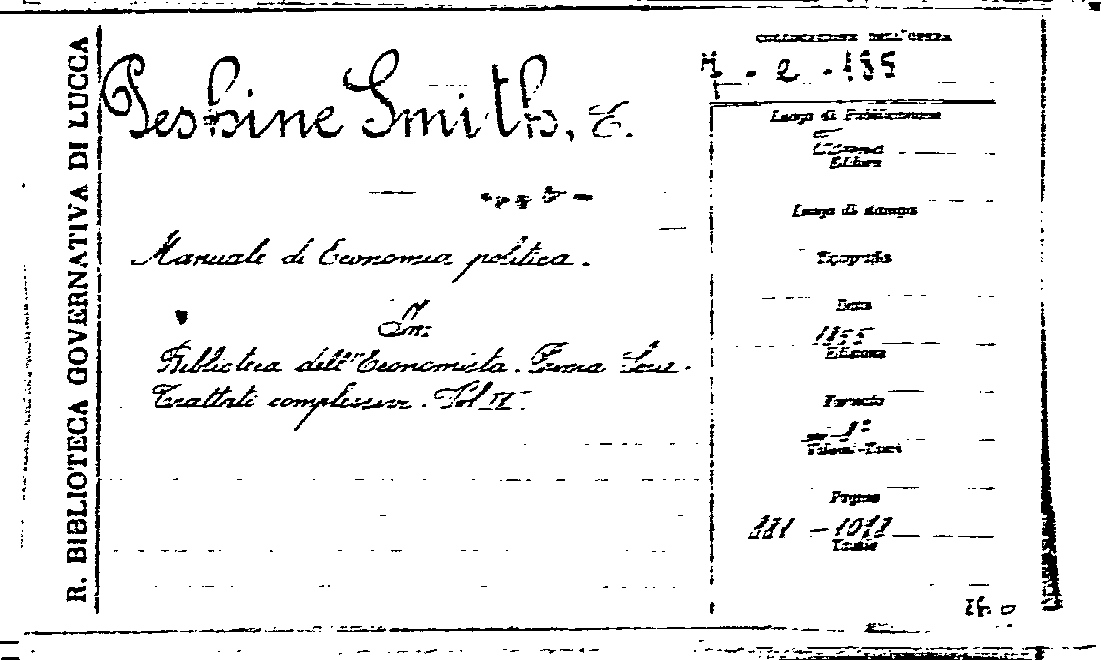 R. BIBLIOTECA GOVERNATIVA DI LUCCA
Peshine Smith, E.
Manuale di Economia politica.
In:
Biblioteca dell'Economista. Prima Serie.
Trattati complessivi. Vol II.
COLLOCAZIONE DELL'OPERA
M. - 2 - 135
Luogo di Pubblicazione
Editore
Luogo di stampa
Tipografia
Data
1855
Edizione
Formato
8°
Volumi-Tomi
Pagine
- 1012
Tavole